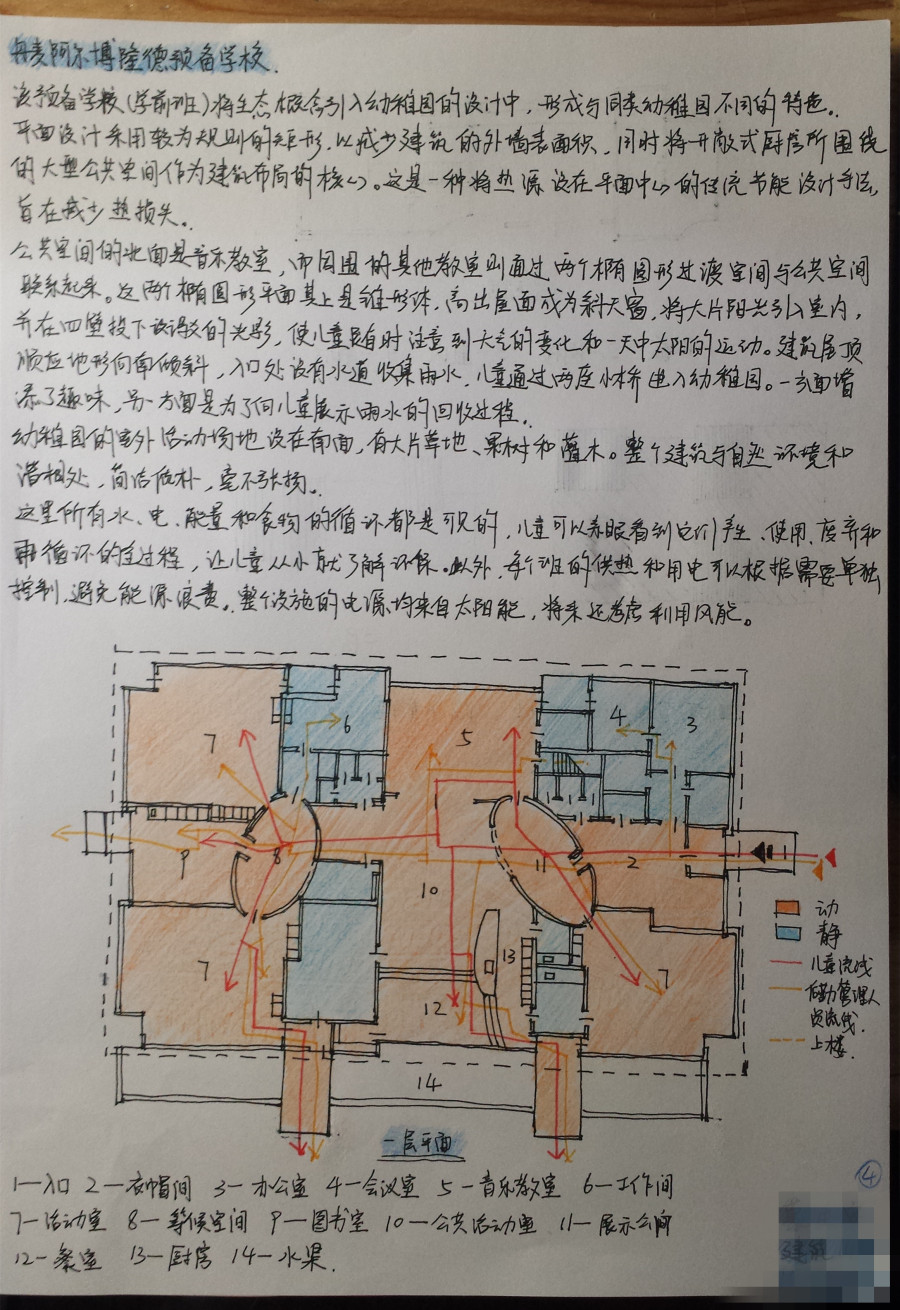 丹麦阿尔博隆德预备学校.
该预备学校(学前班)将生态概念引入幼稚园的设计中,形成与同类幼稚园不同的特色。
平面设计采用较为规则的矩形,以减少建筑的外墙表面积,同时将开敞式厨房所围绕
的大型公共空间作为建筑布局的核心。这是一种将热源设在平面中心的传统节能设计手法,
旨在减少热损失。
公共空间的北面是音乐教室,而周围的其他教室则通过两个椭圆形过渡空间与公共空间
联系起来。这两个椭圆形平面其上是锥形体,高出屋面成为斜天窗,将大片阳光引入室内,
并在四壁投下诙谐的光影,使儿童随时注意到天气的变化和一天中太阳的运动。建筑屋顶
顺应地形向南倾斜,入口处设有水道收集雨水,儿童通过两座小桥进入幼稚园。一方面增
添了趣味,另一方面是为了向儿童展示雨水的回收过程.
幼稚园的室外活动场地设在南面,有大片草地、果树和灌木。整个建筑与自然环境和
谐相处,简洁低朴,毫不张扬。
这里所有水、电、能量和食物的循环都是可见的,儿童可以亲眼看到它们产生、使用、废弃和
再循环的全过程,让儿童从小就了解环保。此外,每个班的供热和用电可以根据需要单独
控制,避免能源浪费。整个设施的电源均来自太阳能,将来还考虑利用风能。
7 6 5 4 3
9 8 11 2 1
10
7 13 7
12
14
动
静
儿童流线
后勤管理人
员流线.
上楼.
一层平面
④
1—入口 2—衣帽间 3—办公室 4—会议室 5—音乐教室 6—工作间
7—活动室 8—等候空间 9—图书室 10—公共活动室 11—展示空间
12—餐室 13—厨房 14—水渠.